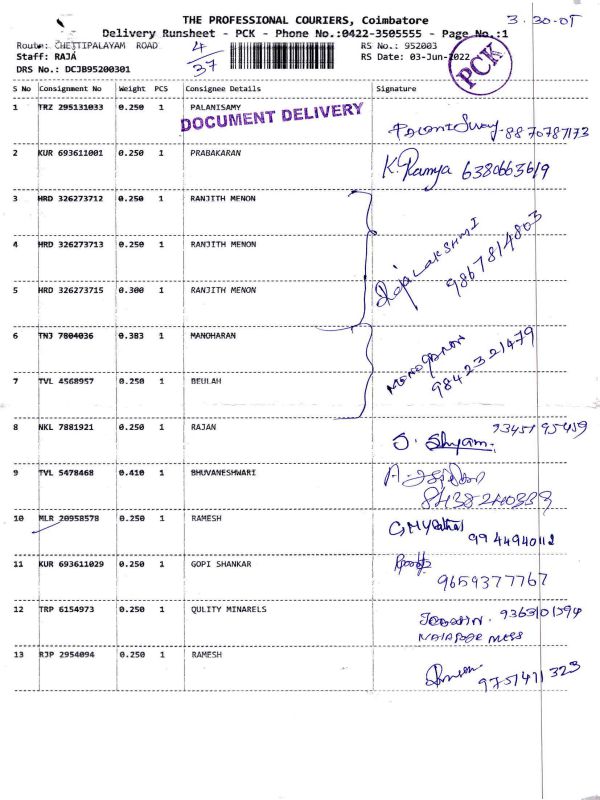 THE PROFESSIONAL COURIERS, Coimbatore
3.30-05
Delivery Runsheet - PCK - Phone No.:0422-3505555 - Page No.:1
Route: CHETTIPALAYAM ROAD
4/37
RS No.: 952003
Staff: RAJA
RS Date: 03-Jun-2022
PCK
DRS No.: DCJB95200301
S No Consignment No Weight PCS Consignee Details Signature
1 TRZ 295131033 0.250 1 PALANISAMY
DOCUMENT DELIVERY
8870787173
2 KUR 693611001 0.250 1 PRABAKARAN K. Ramya 6380663619
3 HRD 326273712 0.250 1 RANJITH MENON
4 HRD 326273713 0.250 1 RANJITH MENON
RajaLAKSHMI
9867814803
5 HRD 326273715 0.300 1 RANJITH MENON
6 TNJ 7804036 0.383 1 MANOHARAN
9842321479
7 TVL 4568957 0.250 1 BEULAH
8 NKL 7881921 0.250 1 RAJAN
S. Shyam.
9345195459
9 TVL 5478468 0.410 1 BHUVANESHWARI
8438240339
10 MLR 20958578 0.250 1 RAMESH
9944940112
11 KUR 693611029 0.250 1 GOPI SHANKAR
9659377767
12 TRP 6154973 0.250 1 QULITY MINARELS
9363101594
13 RJP 2954094 0.250 1 RAMESH
9751411323